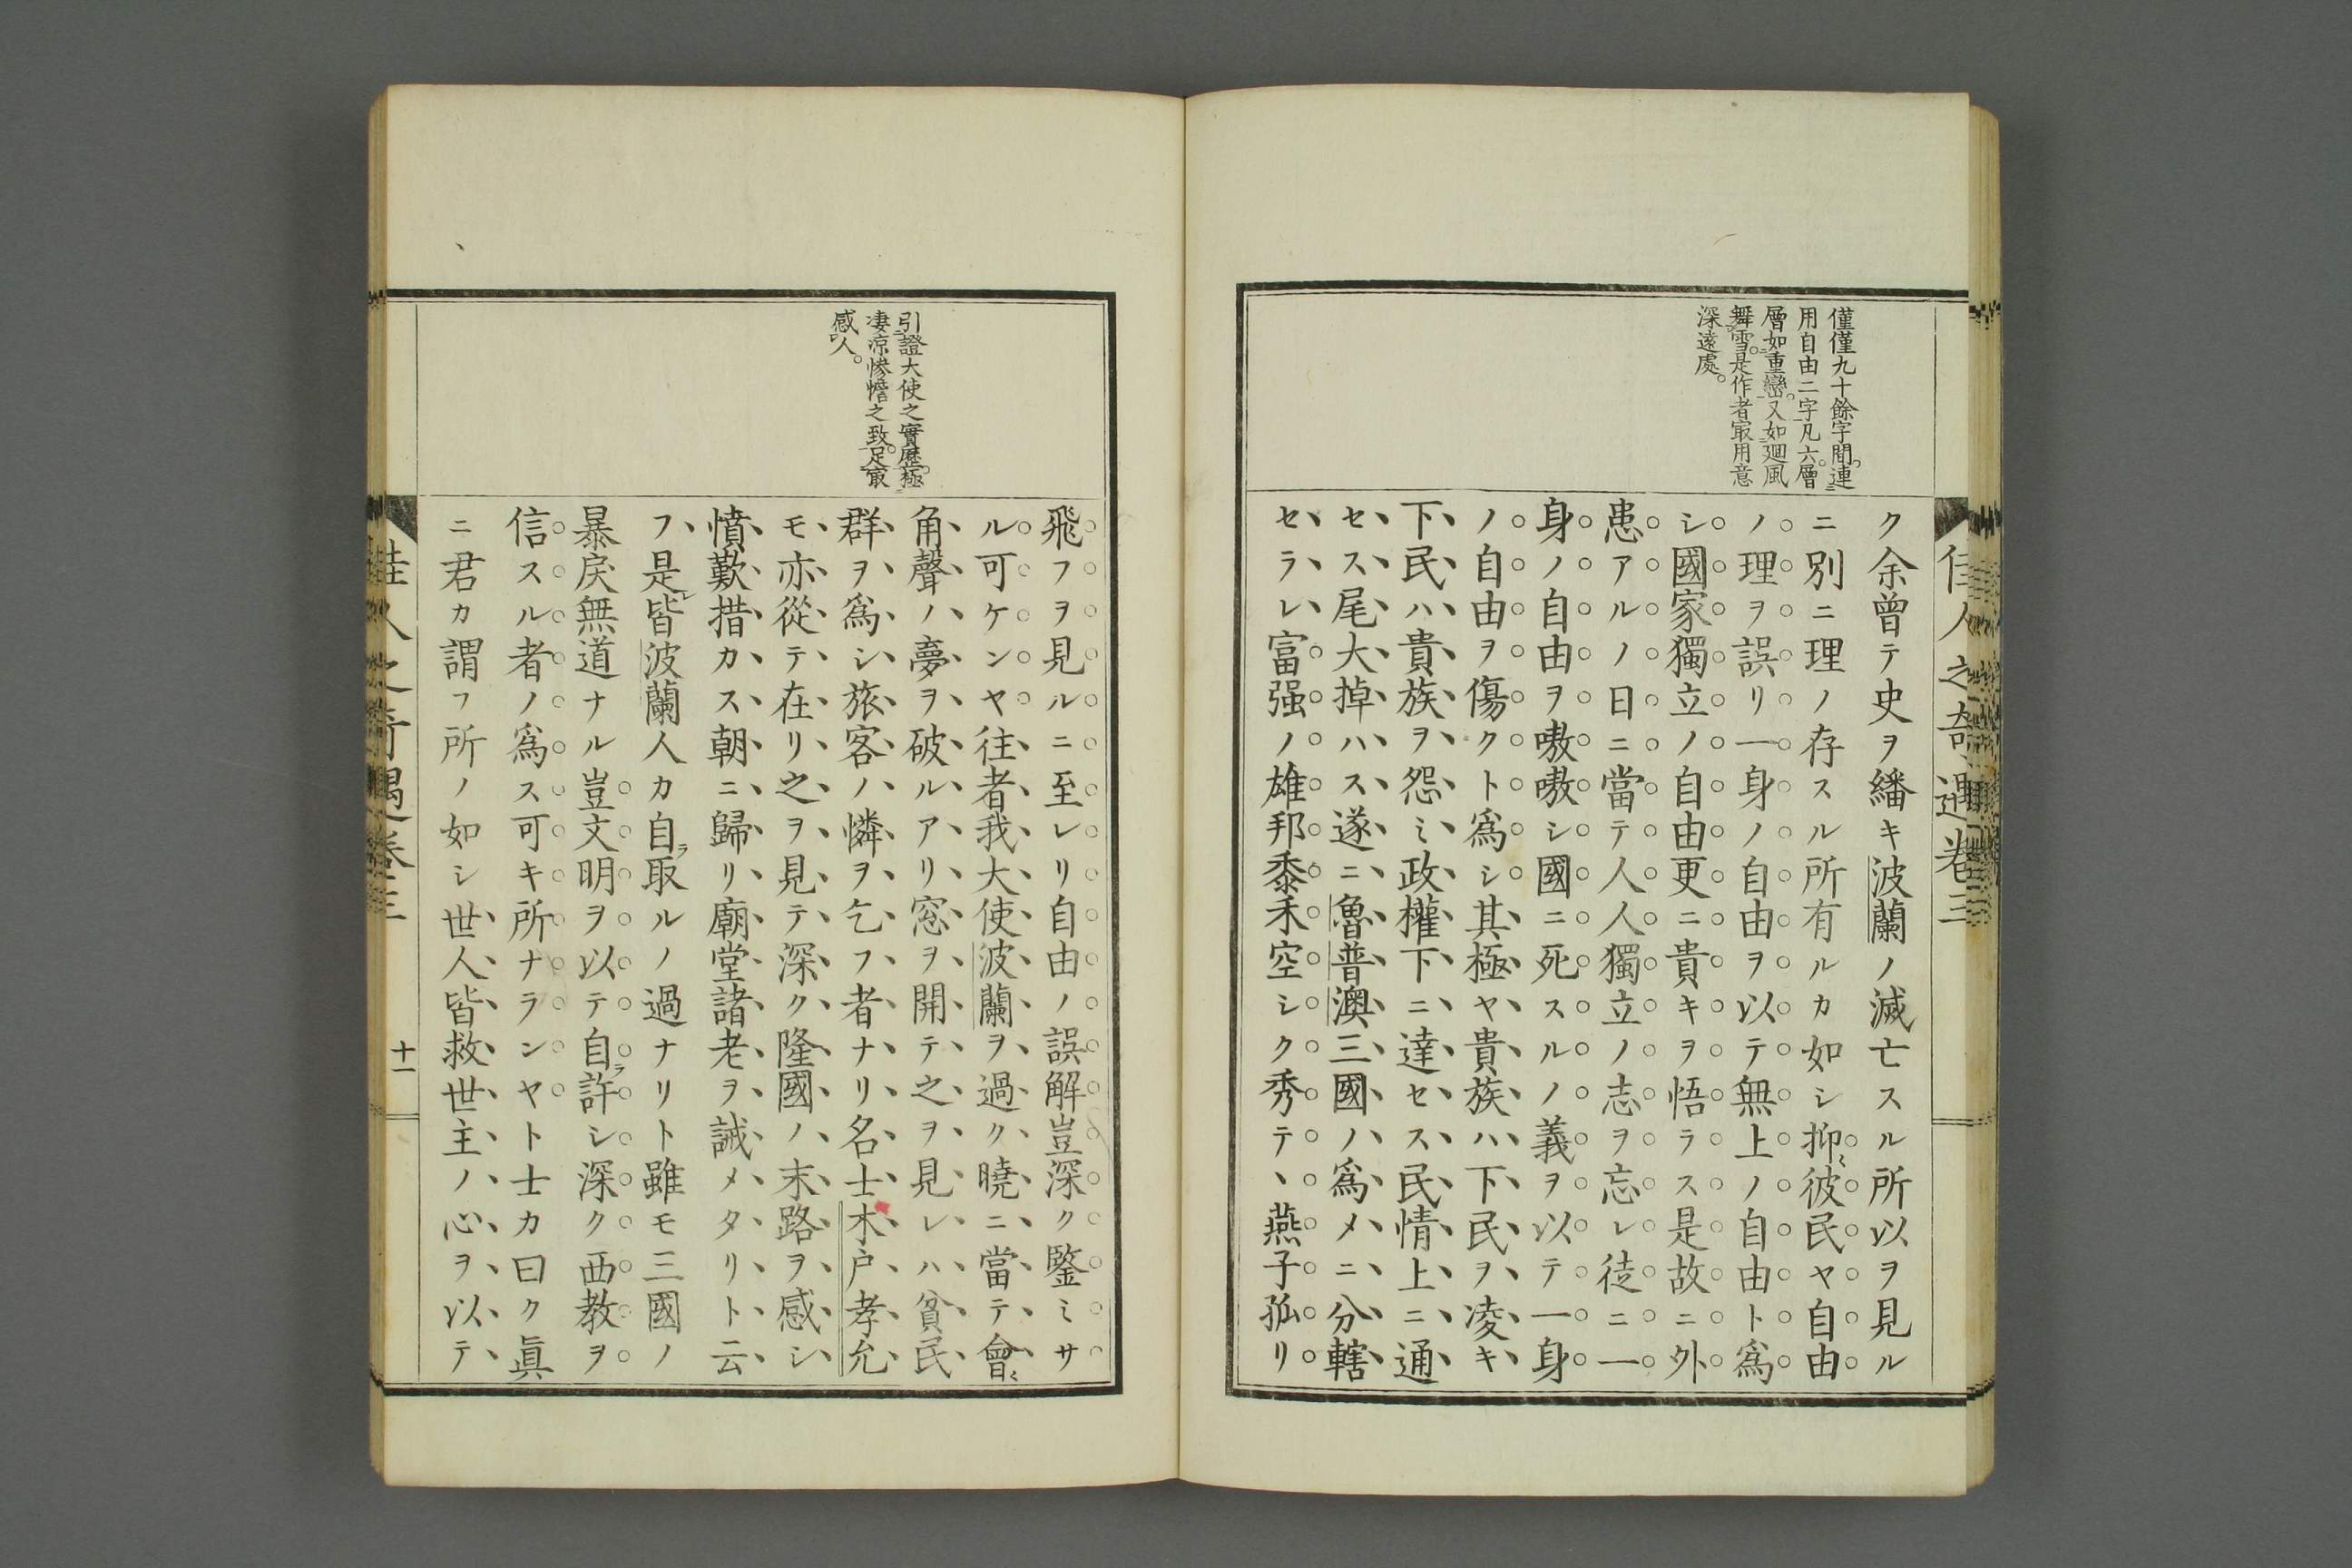 佳人之奇遇卷三
僅僅九十餘字間。連
用自由二字凡六層。
層如重巒。又如廻風
舞雪。是作者㝡用意
深遠處。
ク余曾テ史ヲ繙キ波蘭ノ滅亡スル所以ヲ見ル
ニ別ニ理ノ存スル所有ルカ如シ抑〻彼民ヤ自由
ノ理ヲ誤リ一身ノ自由ヲ以テ無上ノ自由ト爲
シ國家獨立ノ自由更ニ貴キヲ悟ラス是故ニ外
患アルノ日ニ當テ人人獨立ノ志ヲ忘レ徒ニ一
身ノ自由ヲ嗷嗷シ國ニ死スルノ義ヲ以テ一身
ノ自由ヲ傷クト爲シ其極ヤ貴族ハ下民ヲ凌キ
下民ハ貴族ヲ怨ミ政權下ニ達セス民情上ニ通
セス尾大掉ハス遂ニ魯普澳三國ノ爲メニ分轄
セラレ富强ノ雄邦黍禾空シク秀テヽ燕子孤リ
引證大使之實歷。極
凄凉慘憺之致。足㝡
感人。
飛フヲ見ルニ至レリ自由ノ誤解豈深ク鑒ミサ
ル可ケンヤ往者我大使波蘭ヲ過ク曉ニ當テ會〻
角聲ノ夢ヲ破ルアリ窓ヲ開テ之ヲ見レハ貧民
群ヲ爲シ旅客ノ憐ヲ乞フ者ナリ名士木戸孝允
モ亦從テ在リ之ヲ見テ深ク隆國ノ末路ヲ感シ
憤歎措カス朝ニ歸リ廟堂諸老ヲ誡メタリト云
フ是レ皆波蘭人カ自ラ取ルノ過ナリト雖モ三國ノ
暴戾無道ナル豈文明ヲ以テ自ラ許シ深ク西教ヲ
信スル者ノ爲ス可キ所ナランヤト士カ曰ク眞
ニ君カ謂フ所ノ如シ世人皆救世主ノ心ヲ以テ
佳人之奇遇卷三
十一